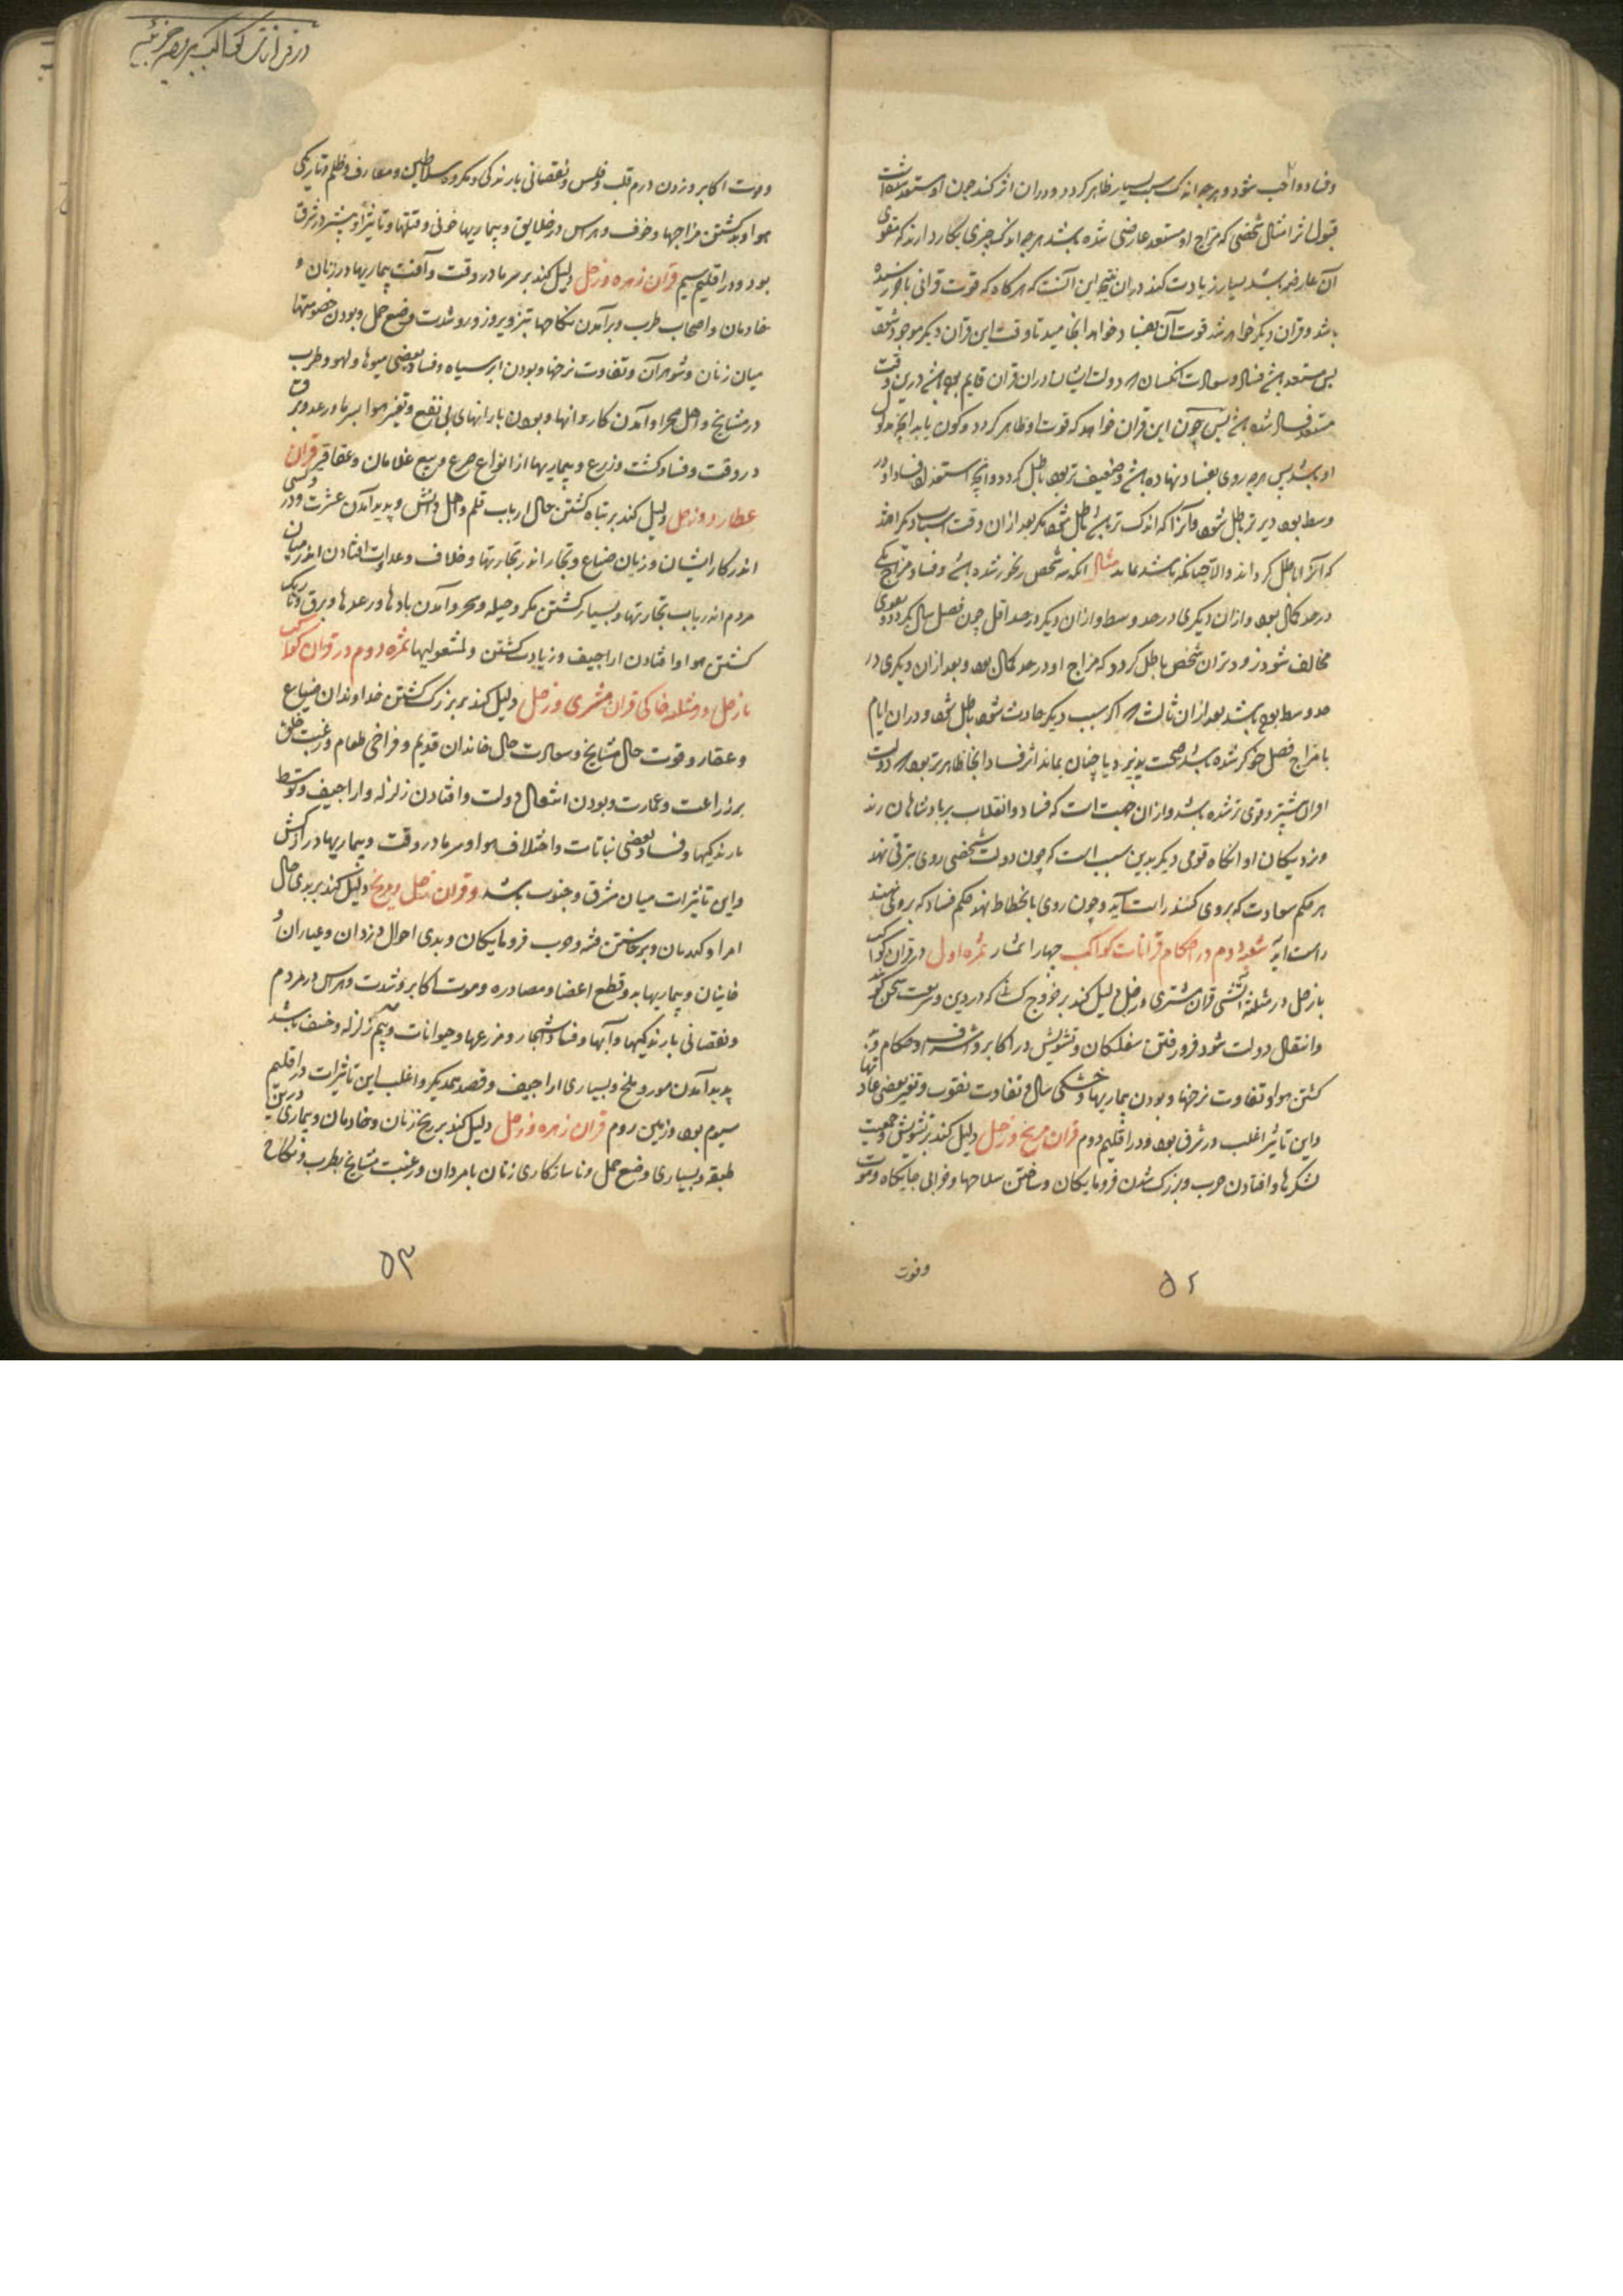 وفساد واجب شود و هرچه اندک سبب بسیار ظاهر کردد و در ان اثر کند چون او مستعد
قبول اثر امثال شخصی که مزاج او مستعد عارضی شده باشد هرچه اندک چیزی بکار دارند که مقوی
آن عارضه باشد بسیار زیادت کند در ان نتیجه این آنست که هرکاه که قوت قرانی باخر رسیده
باشد و قران دیکر خواهد شد قوت آن بفساد خواهد انجامید تا وقت این قران دیکر موجود شود
پس مستعد فساد و سعادت انکسان که دولت ایشان در ان قران قایم بوده درین وقت
مستعد فساد شده پس چون این قران خواهد که قوت او ظاهر کردد و کون یابد انچه مدلول
او باشد پس هرچه روی بفساد نهاده و ضعیف تر بود باطل کردد و انچه استعداد فساد او در
وسط بود دیرتر باطل شود و آنرا که اندک تر باطل شود مکر بعد از ان وقت اسباب دیکر افتد
که آنرا باطل کرداند والا چنانکه باشد بماند مثال انکه سه شخص رنجور شده و فساد مزاج یکی
در حد کمال بود و از ان دیکری در حد وسط و از ان دیکر در حد اقل چون فصل سال بکردد و هوای
مخالف شود زودتر ان شخص باطل کردد که مزاج او در حد کمال بود و بعد از ان دیکری در
حد وسط بود باشد بعد از ان ثالث اکر سبب دیکر حادث شود باطل شود و در ان ایام
با مزاج فصل خوکر شده باشد صحت پذیرد یا چنان بماند اثر فساد انجا ظاهرتر بود که دولت
اول بیشتر و قوی تر شده باشد و از ان جهت است که فساد و انقلاب بر پادشاهان رسد
و نزدیکان او انکاه قومی دیکر بدین سبب است که چون دولت شخصی روی بترقی نهد
هر حکم سعادت که بروی کنند راست آید و چون روی بانحطاط نهد حکم فساد که بروی نهند
راست آید شعبه دوم در احکام قرانات کواکب چهار اثمار ثمره اول در قران کواکب
با زحل در مثلثه آتشی قران مشتری و زحل دلیل کند بر خروج کسی که در دین و شریعت سخن کوید
و انتقال دولت شود و فرو رفتن سفلکان و تشویش در اکابر و اشراف و حکام و
کشتن هوا و تفاوت نرخها و بودن بیماریها و خشکی سال و تفاوت نقوب و تغیر بعضی عادتها
و این تاثیر اغلب در شرق بود و در اقلیم دوم قران مریخ و زحل دلیل کند بر تشویش و جمعیت
لشکرها و افتادن حرب و بزرک شدن فرومایکان و ساختن سلاحها و خرابی جایکاه و موت
وفوت
۵۲
در قرانات کواکب بروج جزئیه
و موت اکابر و زدن درم قلب و فلس و نقصانی بارندکی و مکروه سلاطین و معارف و ظلم و تاریکی
هوا و بد کشتن مزاجها و خوف و هراس در خلایق و بیماریها خونی و قتلها و تاثیر او بیشتر در شرق
بود و در اقلیم سیم قران زهره و زحل دلیل کند بر سرما در وقت و آفت بیماریها در زنان و
خادمان و اصحاب طرب و برآمدن نکاحها بتزویر و زور و شدت وضع حمل و بودن خصومتها
میان زنان و شوهران و تفاوت نرخها و بودن ابر سیاه و فساد بعضی میوها و لهو و طرب
در مشایخ و اهل صحرا و آمدن کاروانها و بودن بارانهای بی نفع و تغیر هوا بسرما و رعد و برق
در وقت و فساد کشت و زرع و بیماریها از انواع صرع و بیع غلامان و عقاقیر قران
عطارد و زحل دلیل کند بر تباه کشتن حال ارباب قلم و اهل دانش و پدید آمدن عشرت
اندر کار ایشان و زیان ضیاع و تجار اندر تجارتها و خلاف و عداوت افتادن اندر میان
مردم اندر باب تجارتها و بسیار کشتن مکر و حیله و سحر و آمدن بادها و رعدها و برق و تاریک
کشتن هوا و افتادن اراجیف و زیادت کشتن و لمشغولیها ثمره دوم در قران کواکب
با زحل در مثلثه خاکی قران مشتری و زحل دلیل کند بر بزرک کشتن خداوندان ضیاع
و عقار و قوت حال مشایخ و سعادت حال خاندان قدیم و فراخی طعام و رغبت خلق
بر زراعت و عمارت و بودن انتقال دولت و افتادن زلزله و اراجیف و توسط
بارندکیها و فساد بعضی نباتات و اختلاف هوا و سرما در وقت و بیماریها
و این تاثیرات میان مشرق و جنوب باشد و قران زحل و مریخ دلیل کند بر بدی حال
امرا و کهدمان و برخاستن فتنه و حرب فرومایکان و بدی احوال دزدان و عیاران و
خاینان و بیماریها بد و قطع اعضا و مصادره و موت اکابر و شدت و هراس در مردم
و نقصانی بارندکیها و آبها و فساد اشجار و مزرعها و حیوانات و بیم زلزله و خسف باشد
پدید آمدن مور و ملخ و بسیاری اراجیف و قصد یکدیکر و اغلب این تاثیرات در اقلیم
سیوم بود و زمین روم قران زهره و زحل دلیل کند بر رنج زنان و خادمان و بیماری درین
طبقه و بسیاری وضع حمل و ناسازکاری زنان با مردان و رغبت مشایخ بطرب و نکاح
۵۳